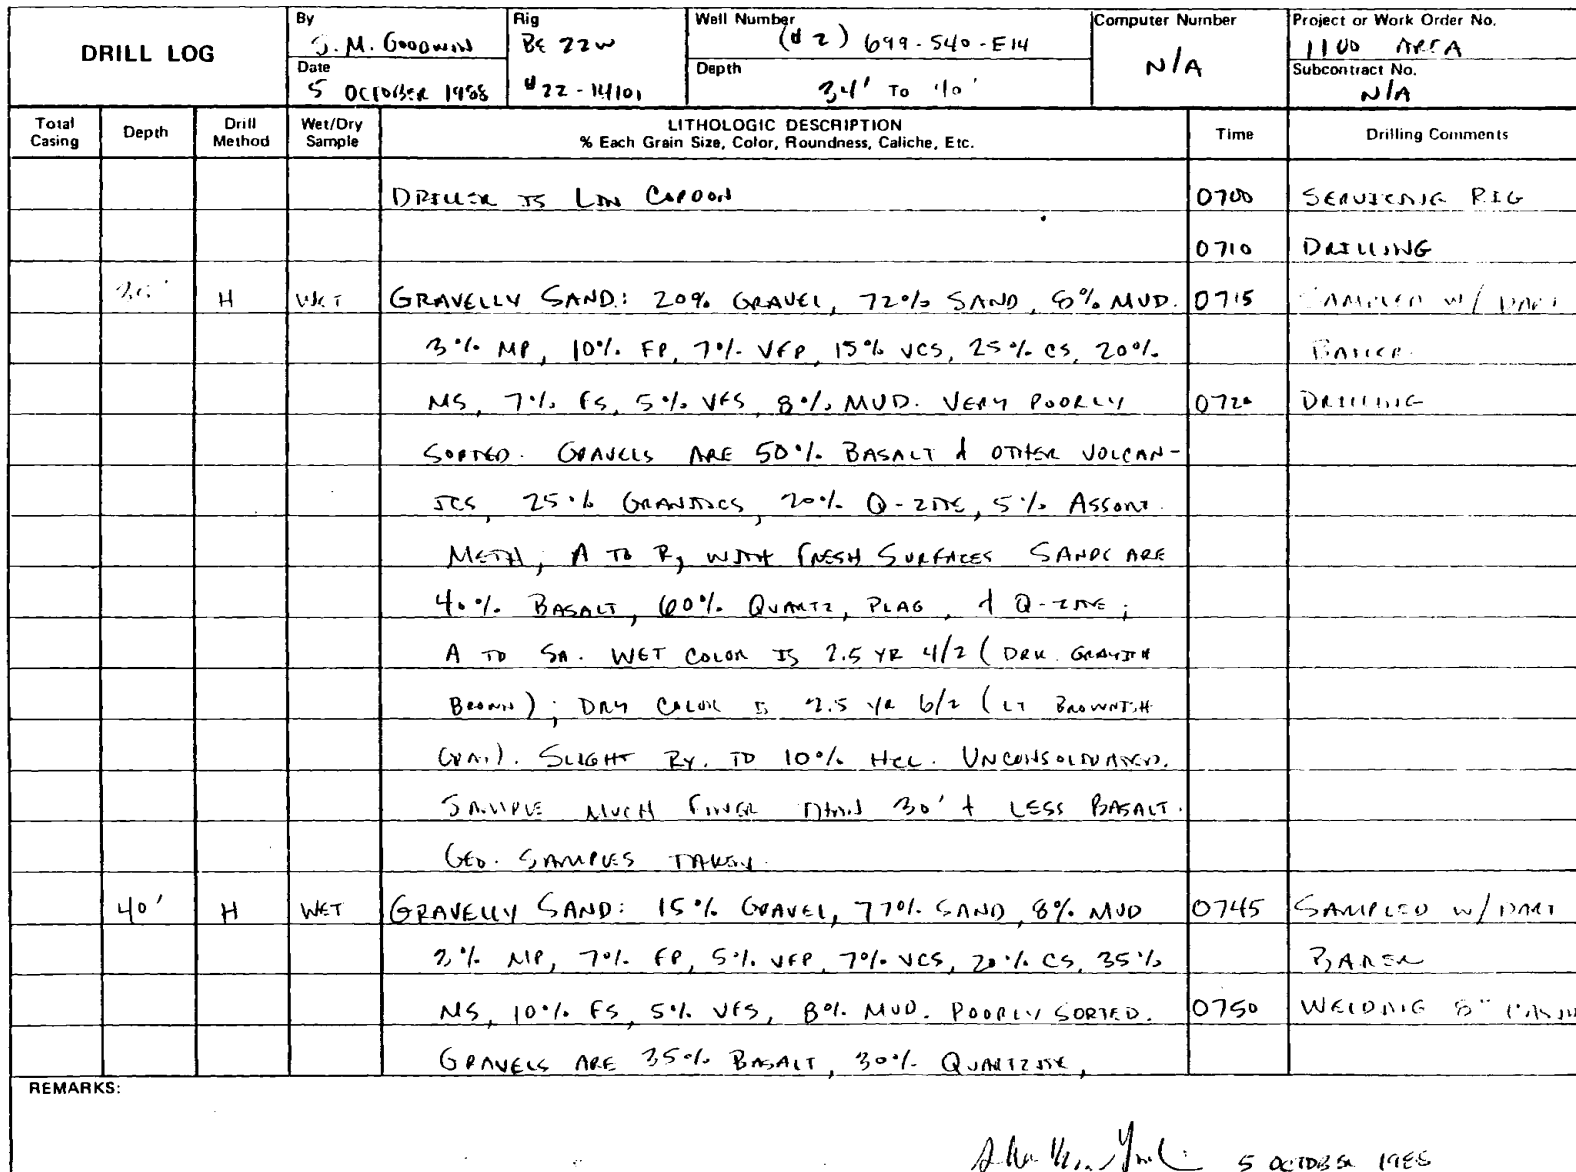 DRILL LOG
By
J. M. GOODWIN
Date
5 OCTOBER 1988
Rig
BE 22W
#22-14101
Well Number
(#2) 699-S40-E14
Depth
34' TO 40'
Computer Number
N/A
Project or Work Order No.
1100 AREA
Subcontract No.
N/A
Total Casing
Depth
Drill Method
Wet/Dry Sample
LITHOLOGIC DESCRIPTION
% Each Grain Size, Color, Roundness, Caliche, Etc.
Time
Drilling Comments
DRILLER IS LIN 0700 SERVICING RIG
0710 DRILLING
H WET GRAVELLY SAND: 20% GRAVEL, 72% SAND, 8% MUD. 0715 SAMPLED W/ DART
3% MP, 10% FP, 7% VFP, 15% VCS, 25% CS, 20% BAILER
MS, 7% FS, 5% VFS, 8% MUD. VERY POORLY 0720 DRILLING
SORTED. GRAVELS ARE 50% BASALT & OTHER VOLCAN-
ICS, 25% GRANITICS, 20% Q-ZITE, 5% ASSORT.
META, A TO R, WITH FRESH SURFACES SANDS ARE
40% BASALT, 60% QUARTZ, PLAG, & Q-ZITE;
A TO SA. WET COLOR IS 2.5 YR 4/2 (DRK. GRAYISH
BROWN); DRY COLOR IS 2.5 YR 6/2 (LT BROWNISH
GRAY). SLIGHT RX. TO 10% HCL. UNCONSOLIDATED.
SAMPLE MUCH FINER THAN 30' & LESS BASALT.
GEO. SAMPLES TAKEN.
40' H WET GRAVELLY SAND: 15% GRAVEL, 77% SAND, 8% MUD 0745 SAMPLED W/ DART
3% MP, 7% FP, 5% VFP, 7% VCS, 20% CS, 35% BAILER
MS, 10% FS, 5% VFS, 8% MUD. POORLY SORTED. 0750 WELDING 8"
GRAVELS ARE 35% BASALT, 30% QUARTZITE,
REMARKS:
5 OCTOBER 1988